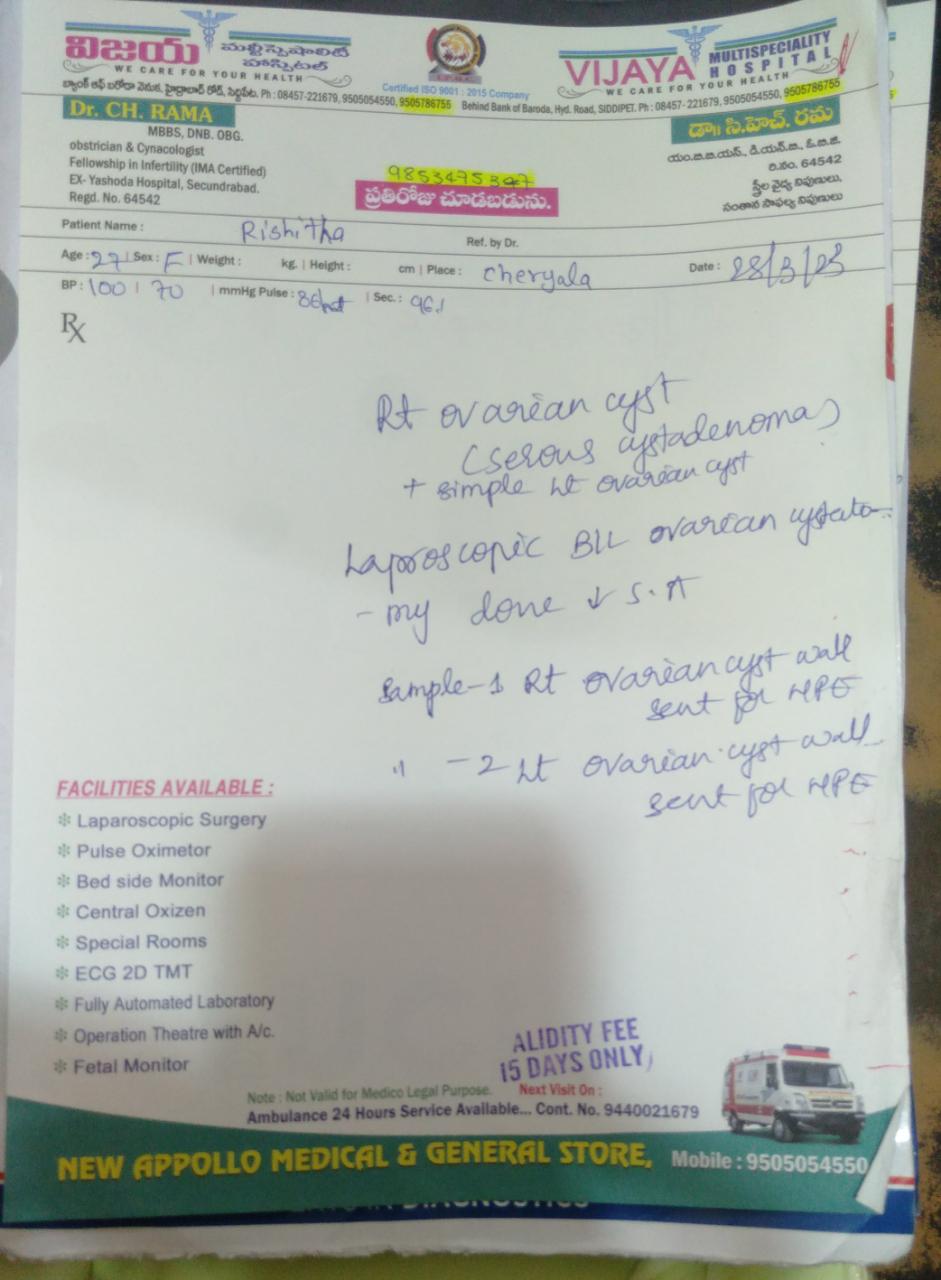 విజయ మల్టీస్పెషాలిటీ హాస్పిటల్
WE CARE FOR YOUR HEALTH
Certified ISO 9001 : 2015 Company
VIJAYA MULTISPECIALITY HOSPITAL
WE CARE FOR YOUR HEALTH
బ్యాంక్ ఆఫ్ బరోడా వెనుక, హైద్రాబాద్ రోడ్, సిద్దిపేట. Ph : 08457-221679, 9505054550, 9505786755
Behind Bank of Baroda, Hyd. Road, SIDDIPET. Ph : 08457- 221679, 9505054550, 9505786755
Dr. CH. RAMA
MBBS, DNB. OBG.
obstrician & Cynacologist
Fellowship in Infertility (IMA Certified)
EX- Yashoda Hospital, Secundrabad.
Regd. No. 64542
ప్రతిరోజు చూడబడును.
డా॥ సి.హెచ్. రమ
ఎం.బి.బి.యస్., డి.యన్.బి., ఓ.బి.జి.
రి.నం. 64542
స్త్రీల వైద్య నిపుణులు,
సంతాన సాఫల్య నిపుణులు
Patient Name : Rishitha Ref. by Dr.
Age : 27 | Sex : F | Weight : kg. | Height : cm | Place : Cheryala Date : 28/3/23
BP : 100 | 70 | mmHg Pulse : | Sec. :
Rx
Rt ovarian cyst
(serous cystadenoma)
+ simple Lt ovarian cyst
Laproscopic B/L ovarian
- my done ↓ S.A
Sample-1 Rt ovarian cyst wall
sent for HPE
" -2 Lt ovarian cyst wall
sent for HPE
FACILITIES AVAILABLE :
❇ Laparoscopic Surgery
❇ Pulse Oximetor
❇ Bed side Monitor
❇ Central Oxizen
❇ Special Rooms
❇ ECG 2D TMT
❇ Fully Automated Laboratory
❇ Operation Theatre with A/c.
❇ Fetal Monitor
ALIDITY FEE
15 DAYS ONLY
Note : Not Valid for Medico Legal Purpose. Next Visit On :
Ambulance 24 Hours Service Available... Cont. No. 9440021679
NEW APPOLLO MEDICAL & GENERAL STORE, Mobile : 9505054550